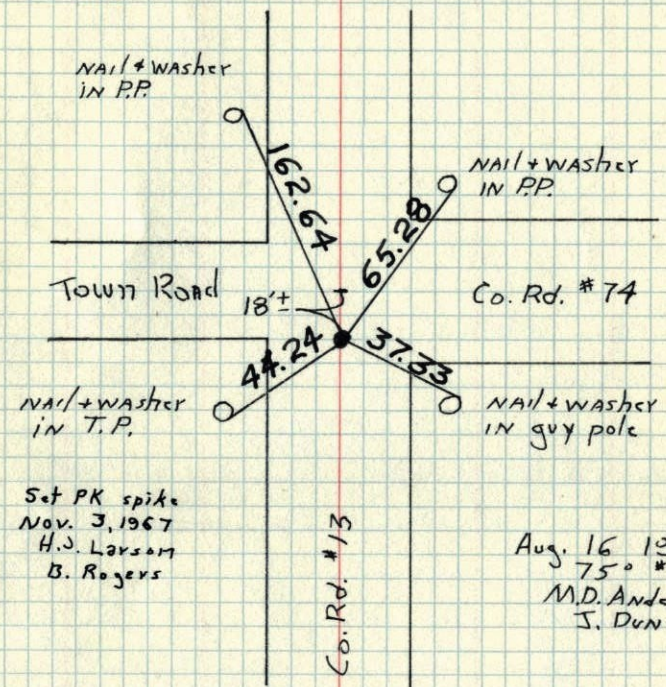 NAil & WASher
iN P.P.
NAil + WASher
IN P.P.
162.64
65.28
Town Road
18'±
Co. Rd. #74
44.24
37.33
NAil + WASher
iN T.P.
NAil + WASher
IN guy pole
Set PK spike
Nov. 3, 1967
H.J. Larson
B. Rogers
Co. Rd. #13
Aug. 16
75° #
M.D.
J.